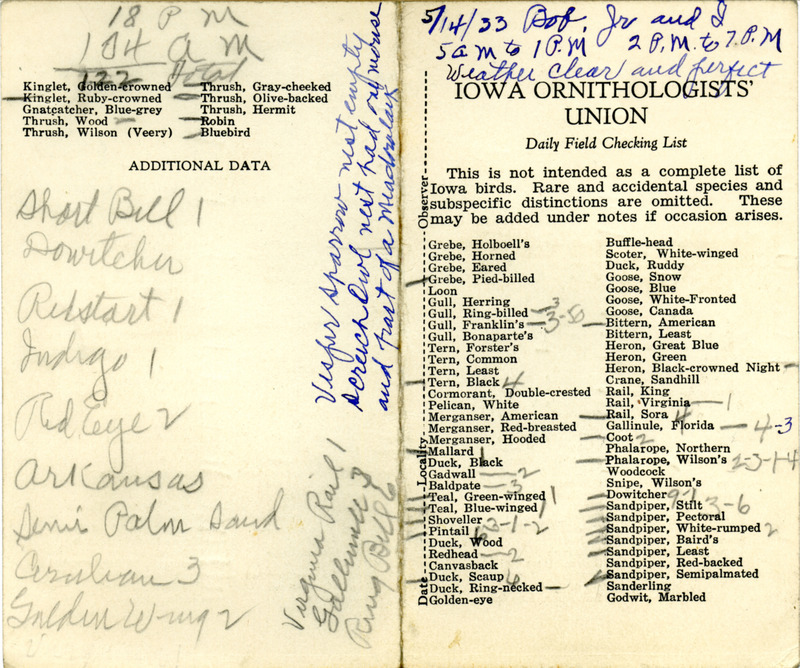 18 P M
104 A M
122 Total
Kinglet, Golden-crowned
Kinglet, Ruby-crowned
Gnatcatcher, Blue-grey
Thrush, Wood
Thrush, Wilson (Veery)
Thrush, Gray-cheeked
Thrush, Olive-backed
Thrush, Hermit
Robin
Bluebird
ADDITIONAL DATA
Short Bill 1
Dowitcher
Redstart 1
Indigo 1
Red Eye 2
Arkansas
Semi Palm Sand
Cerulean 3
Golden Wing 2
Vesper sparrow nest empty
screech Owl nest had one mouse
and part of a Meadowlark
Virginia Rail 1
Gallinule 3
Ring Bill 6
5/14/33 Bob, Jr and I
5 am to 1 P.M 2 P.M. to 7 P.M
Weather clear and perfect
IOWA ORNITHOLOGISTS'
UNION
Daily Field Checking List
This is not intended as a complete list of
Iowa birds. Rare and accidental species and
subspecific distinctions are omitted. These
may be added under notes if occasion arises.
Observer
Locality
Date
Grebe, Holboell's
Grebe, Horned
Grebe, Eared
Grebe, Pied-billed
Loon
Gull, Herring
Gull, Ring-billed 3
Gull, Franklin's 3-50
Gull, Bonaparte's
Tern, Forster's
Tern, Common
Tern, Least
Tern, Black 4
Cormorant, Double-crested
Pelican, White
Merganser, American
Merganser, Red-breasted
Merganser, Hooded
Mallard 1
Duck, Black
Gadwall 2
Baldpate 3
Teal, Green-winged 1
Teal, Blue-winged
Shoveller 3-1-2
Pintail
Duck, Wood
Redhead 2
Canvasback
Duck, Scaup 6
Duck, Ring-necked
Golden-eye
Buffle-head
Scoter, White-winged
Duck, Ruddy
Goose, Snow
Goose, Blue
Goose, White-Fronted
Goose, Canada
Bittern, American
Bittern, Least
Heron, Great Blue
Heron, Green
Heron, Black-crowned Night
Crane, Sandhill
Rail, King
Rail, Virginia 1
Rail, Sora 4
Gallinule, Florida 4-3
Coot 2
Phalarope, Northern
Phalarope, Wilson's 2-3-1-4
Woodcock
Snipe, Wilson's
Dowitcher
Sandpiper, Stilt 3-6
Sandpiper, Pectoral
Sandpiper, White-rumped 2
Sandpiper, Baird's
Sandpiper, Least
Sandpiper, Red-backed
Sandpiper, Semipalmated
Sanderling
Godwit, Marbled